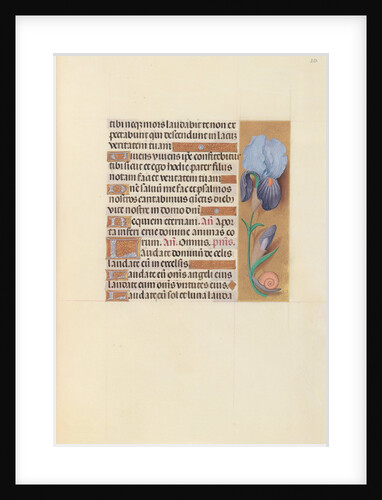 tibi neqz mors laudabit te non ex
pectabunt qui descendunt in lacū
veritatem tuam
Vivens vivens ipe confitebitur
tibi sicut et ego hodie pater filiis
notam faciet veritatem tuam
Dne salvū me fac et psalmos
nostros cantabimus cūctis dieb
vite nostre in domo dnī
Requiem eternam. Añ. A por
ta inferi erue domine animas eo
rum. Añ. Omnis. pſmꝰ.
Laudate dominū de celis
laudate eū in excelsis
Laudate eū om̄s angeli eius
laudate eum om̄s virtutes eius
Laudate eū sol et luna laudat